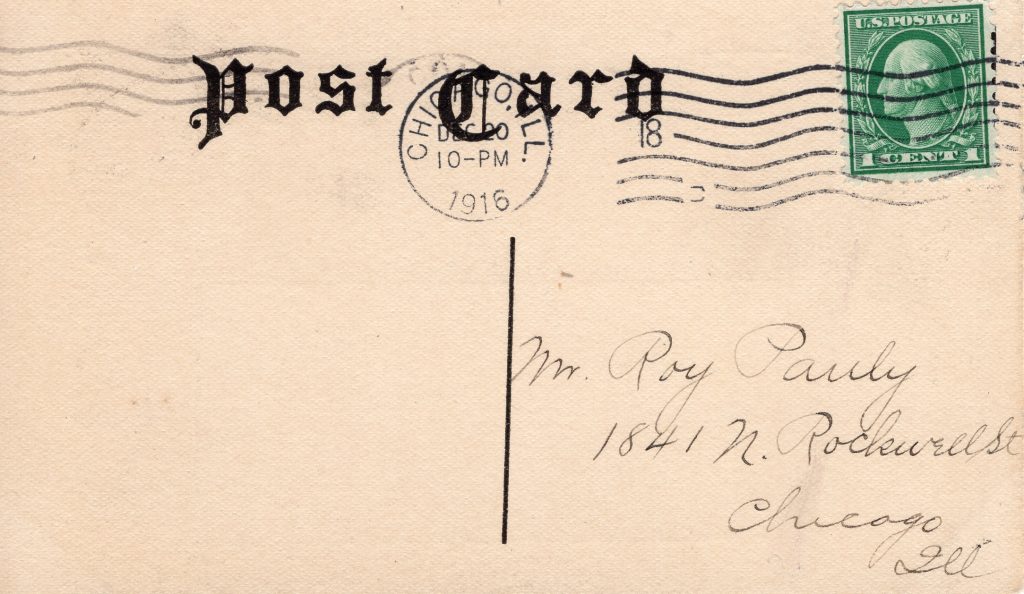 Post Card
U.S. POSTAGE
1 CENT 1
CHICAGO, ILL.
DEC 20
10-PM
1916
18
Mr. Roy Pauly
1841 N. Rockwell St
Chicago
Ill